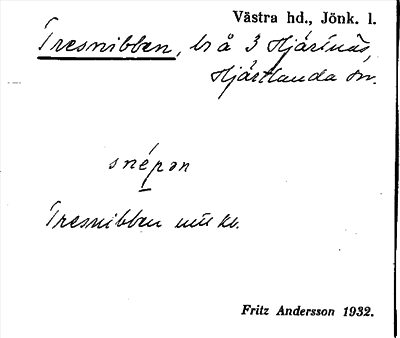 Västra hd., Jönk. l.
Tresnibben, br å 3 Hjärtnäs,
Hjärtlanda sn.
snépən
Tresnibben
Fritz Andersson 1932.